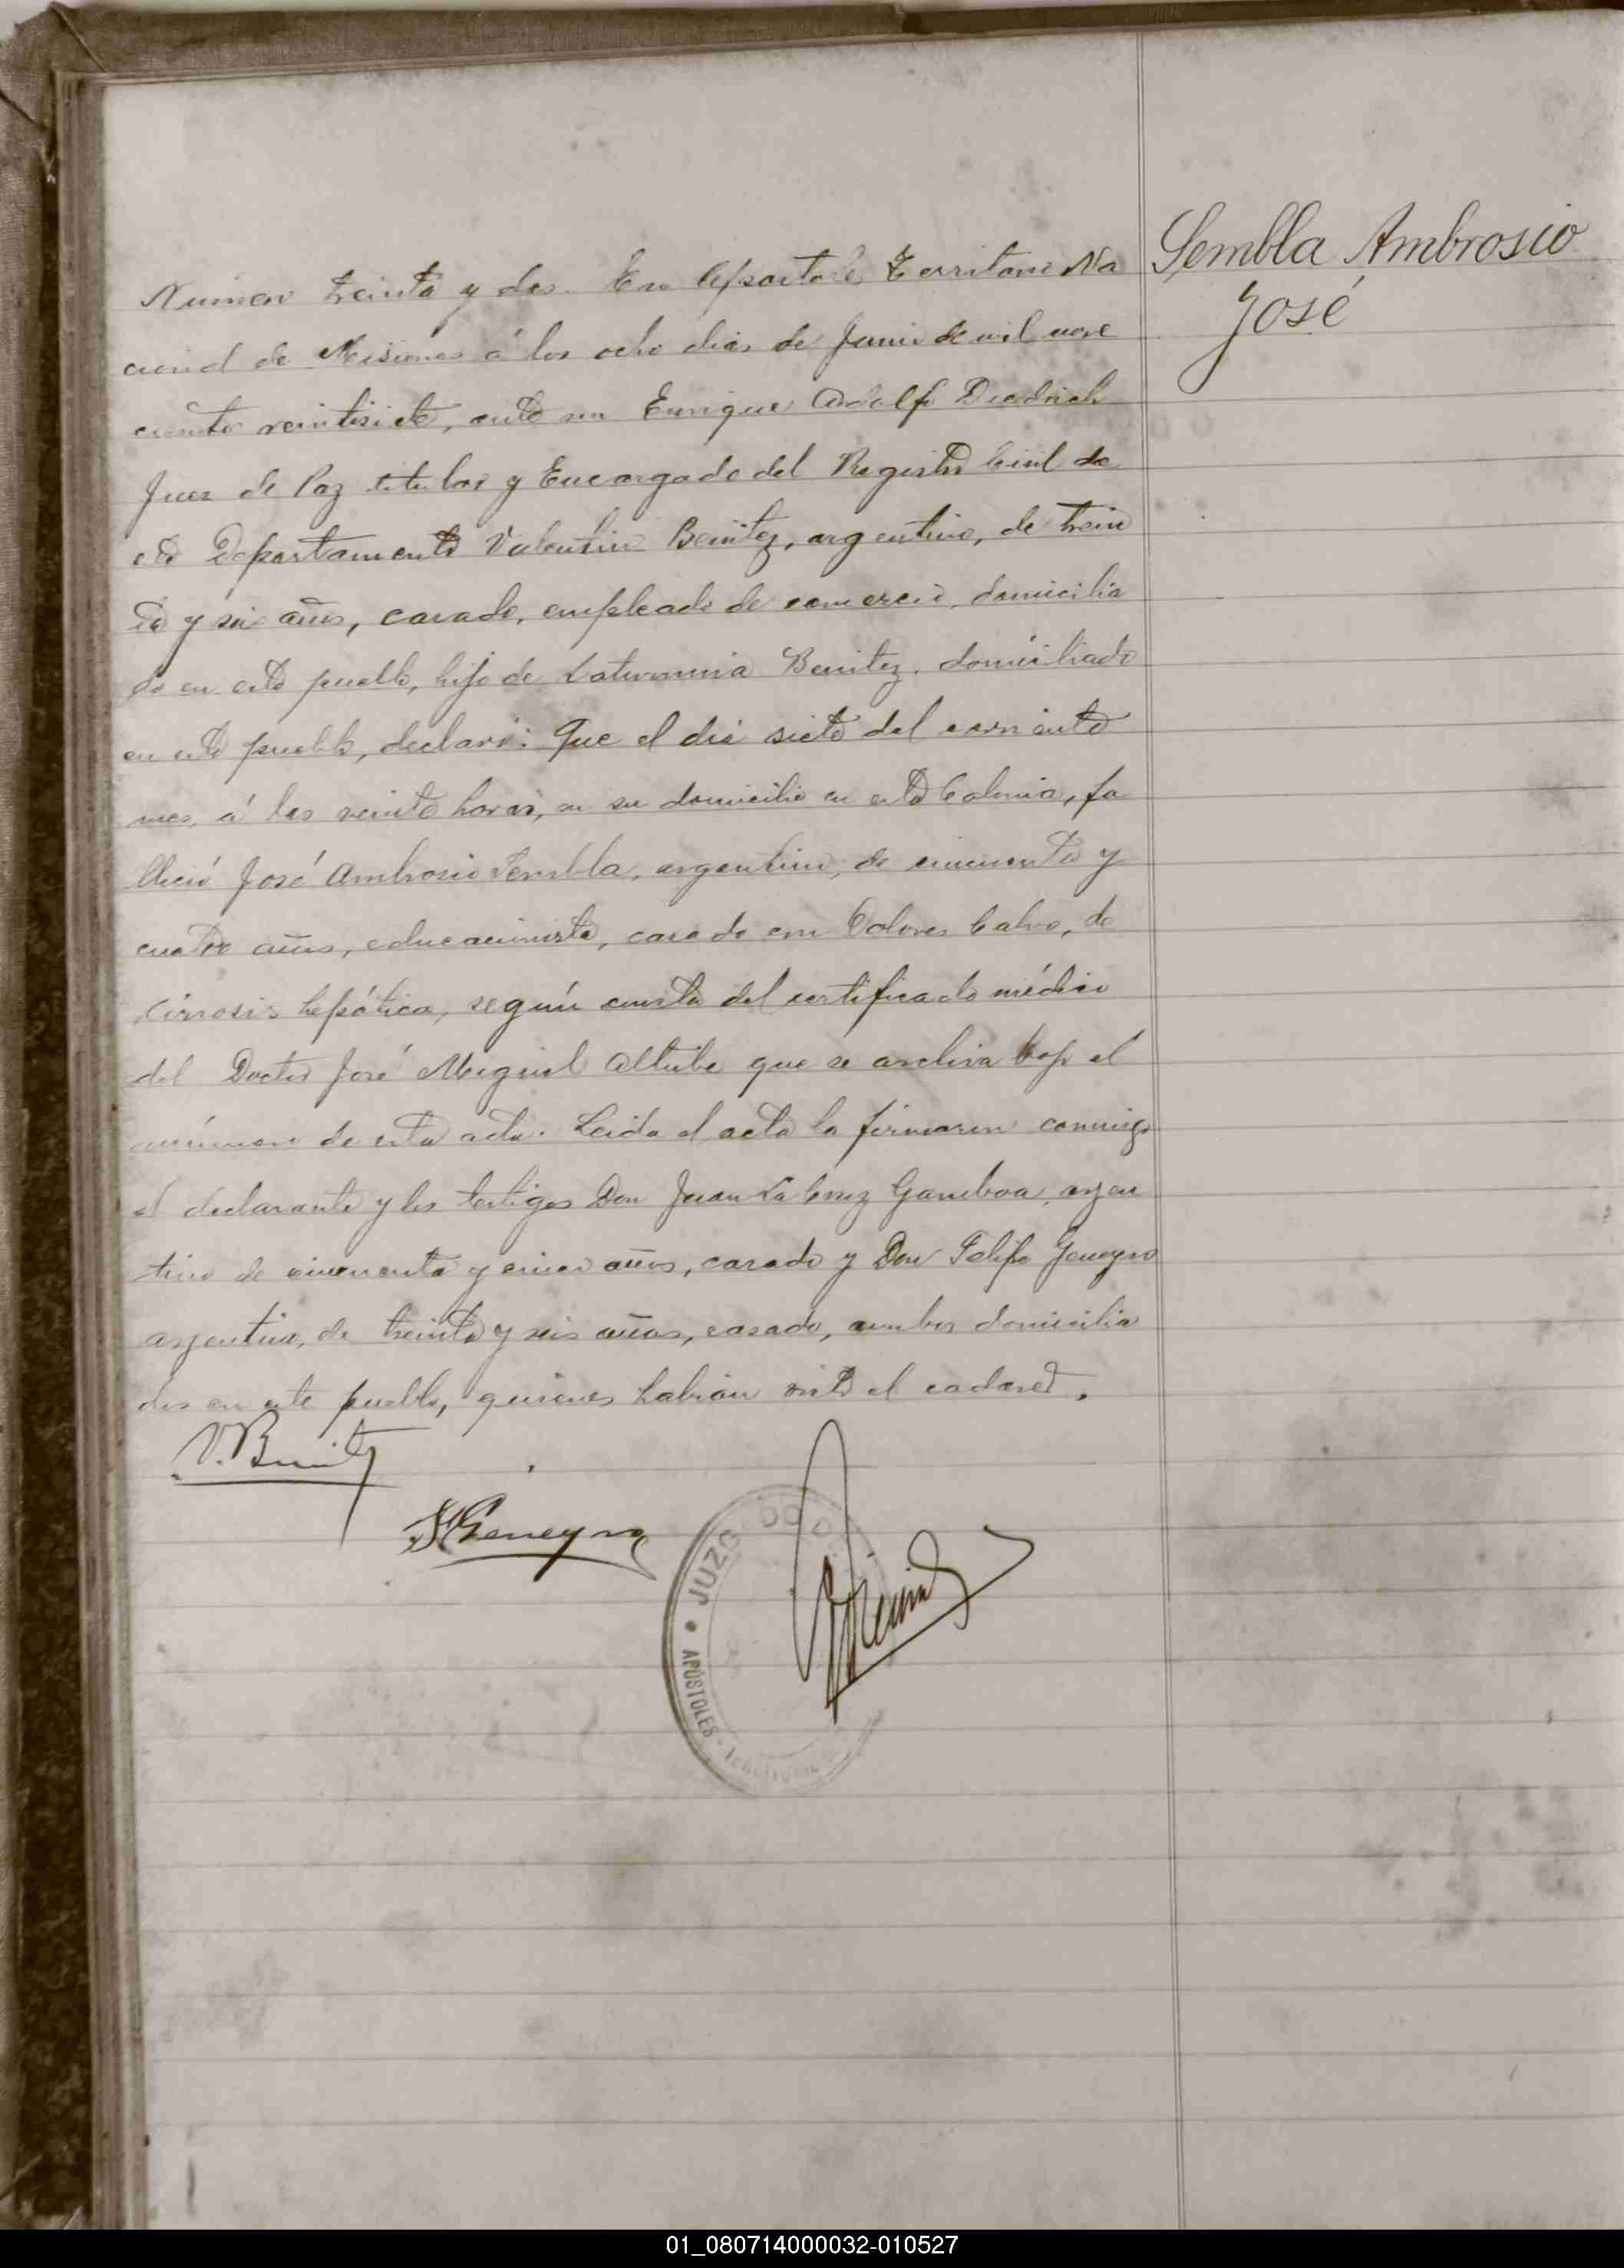 Sembla Ambrosio
José
Número treinta y dos. En Apóstoles Territorio Na
cional de Misiones á los ocho dias de Junio de mil nove
cientos veintisiete, ante mi Enrique Adolfo Diedrich
Juez de Paz titular y Encargado del Registro Civil de
este Departamento Valentin Benitez, argentino, de trein
ta y seis años, casado, empleado de comercio, domicilia
do en este pueblo, hijo de Saturnina Benitez, domiciliado
en este pueblo, declaró: Que el dia siete del corriente
mes, á las veinte horas, en su domicilio en esta Colonia, fa
lleció José Ambrosio Sembla, argentino, de cincuenta y
cuatro años, educacionista, casado con Dolores Calvo, de
cirrosis hepática, según consta del certificado médico
del Doctor José Miguel Altube que se archiva bajo el
número de esta acta. Leida el acta la firmaron conmigo
el declarante y los testigos Don Juan La Cruz Gamboa, argen
tino de cincuenta y cinco años, casado y Don Felipe Geneyro
argentino, de treinta y seis años, casado, ambos domicilia
dos en este pueblo, quienes habian visto el cadaver.
V. Benitez
F Geneyro
JUZGADO D
APÓSTOLES